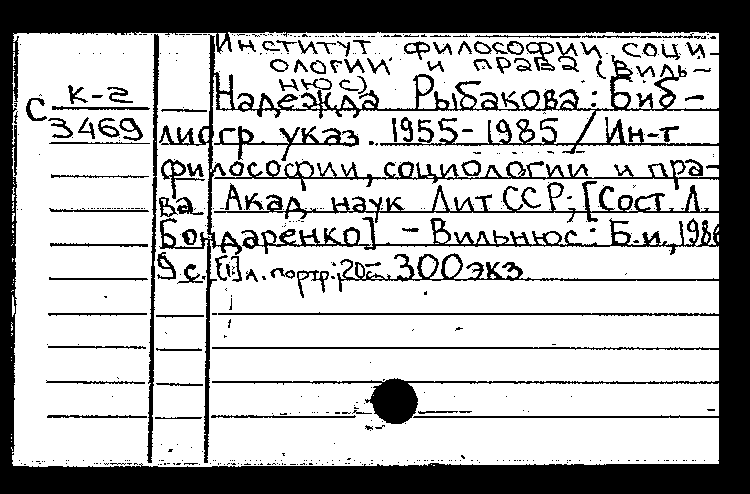 Институт философии, соци-
ологии и права (Виль-
нюс).
С К-2
3469
Надежда Рыбакова: Биб-
лиогр. указ. 1955-1985 / Ин-т
философии, социологии и пра-
ва Акад. наук ЛитССР; [Сост. Л.
Бондаренко] - Вильнюс: Б.и., 1986
9 с. [1] л. портр.; 20см. 300 экз